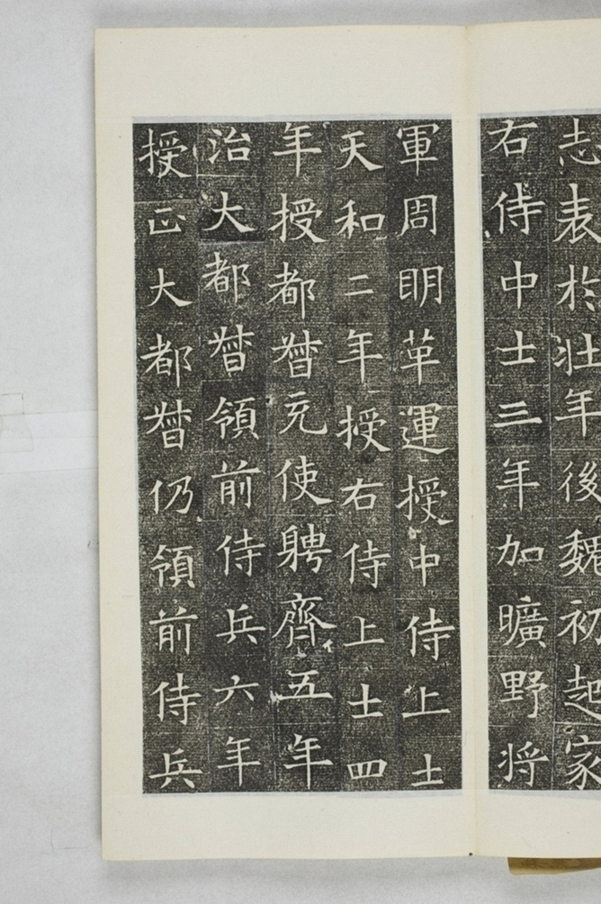 志表於壯年後魏初起家
右侍中士三年加曠野将
軍周明革運授中侍上士
天和二年授右侍上士四
年授都督充使聘齊五年
治大都督領前侍兵六年
授正大都督仍領前侍兵